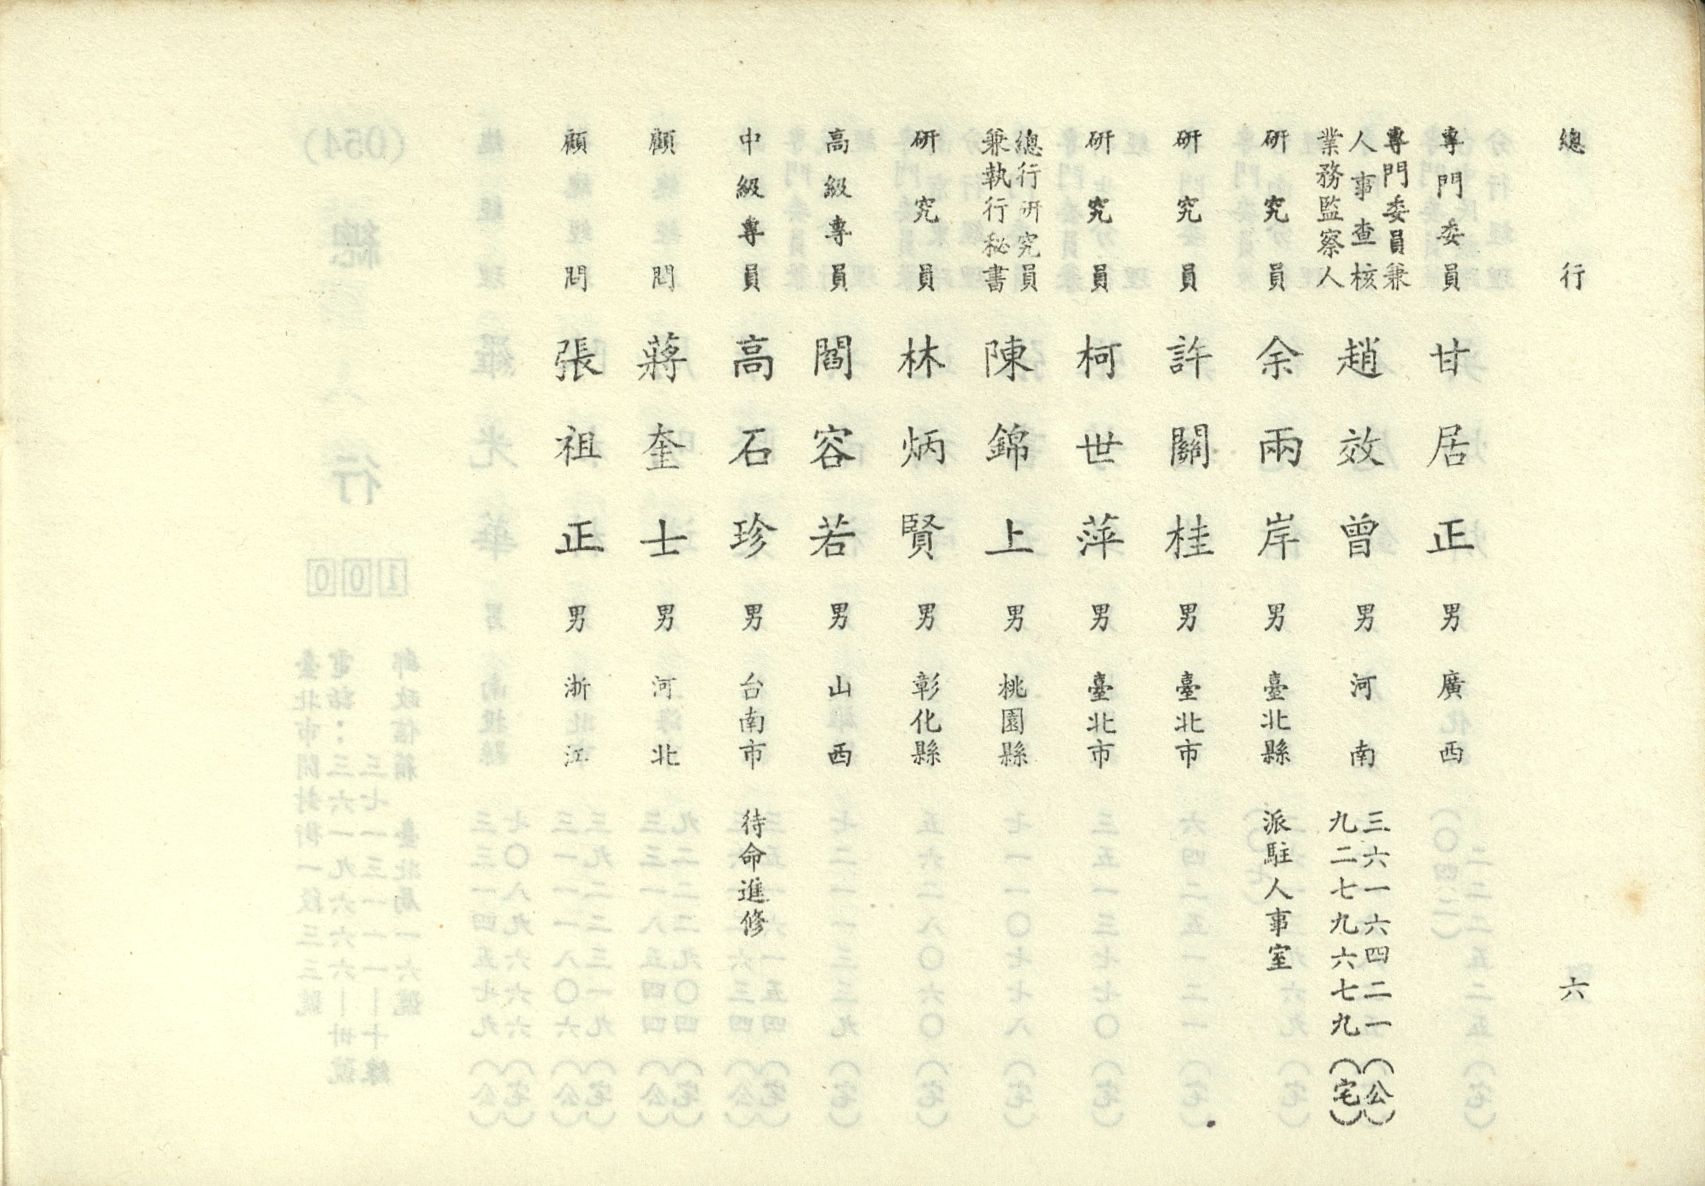 總行 六
專門委員 甘居正 男 廣西
專門委員兼人事查核業務監察人 趙效曾 男 河南 三六一六四二一(公) 九二七九六七九(宅)
研究員 余兩岸 男 臺北縣 派駐人事室
研究員 許關桂 男 臺北市
研究員 柯世萍 男 臺北市
總行研究員兼執行秘書 陳錦上 男 桃園縣
研究員 林炳賢 男 彰化縣
高級專員 閻容若 男 山西
中級專員 高石珍 男 台南市 待命進修
顧問 蔣奎士 男 河北
顧問 張祖正 男 浙江